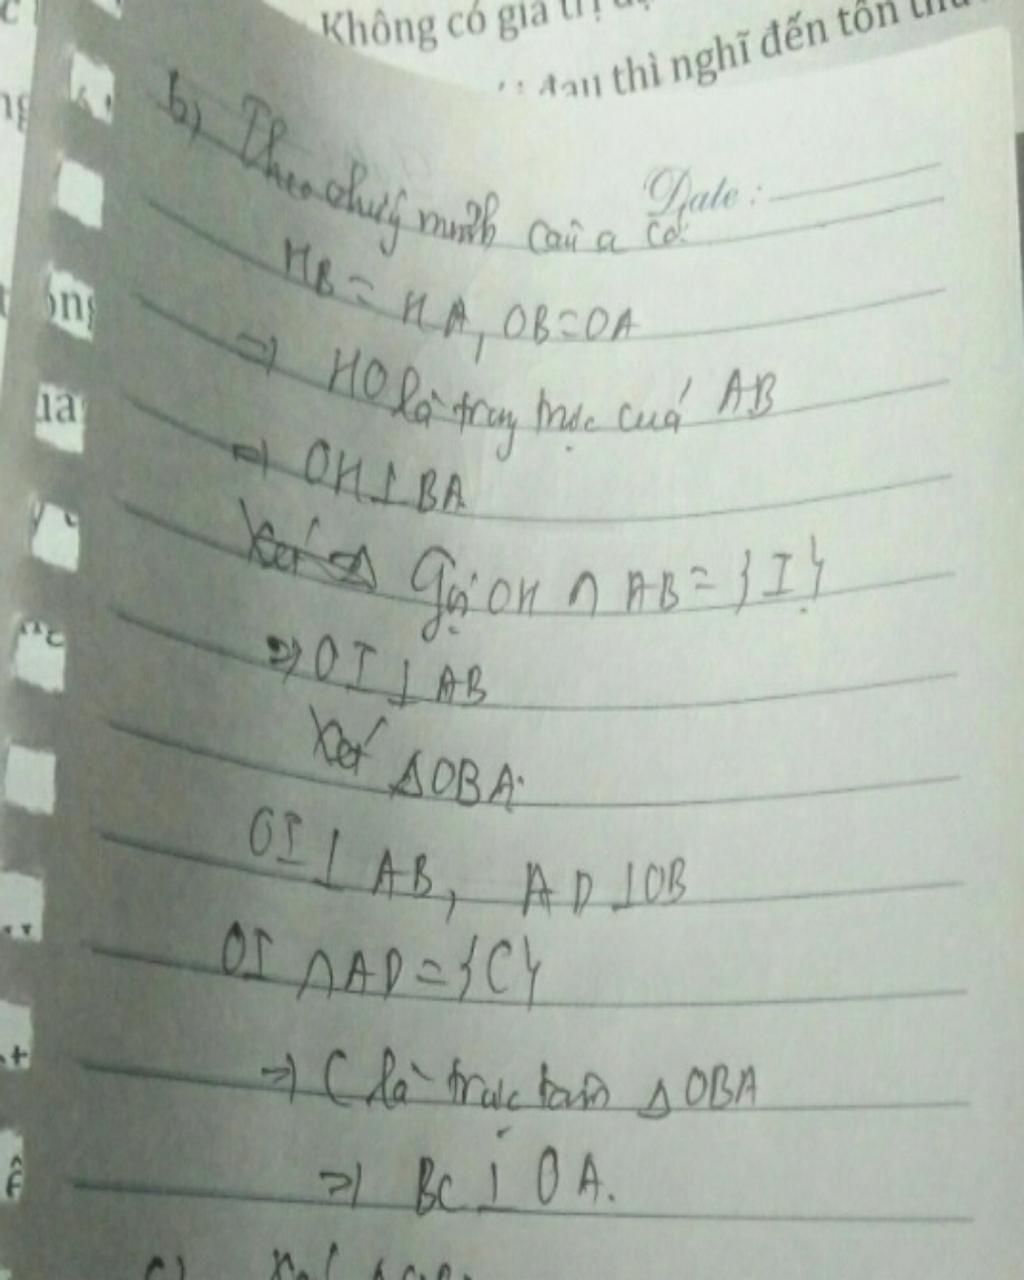 Không có giá trị
đau thì nghĩ đến tổn
b) Theo chứg minh câu a có:
Date:
HB = HA, OB=OA
=> HO là trug trực cuả AB
=> OH⊥BA
Xét Δ Gọi OH ∩ AB = {I}
=> OI ⊥ AB
Xét ΔOBA:
OI ⊥ AB, AD ⊥OB
OI ∩ AD = {C}
=> C là trực tâm Δ OBA
=> BC ⊥ OA.
c) Xét